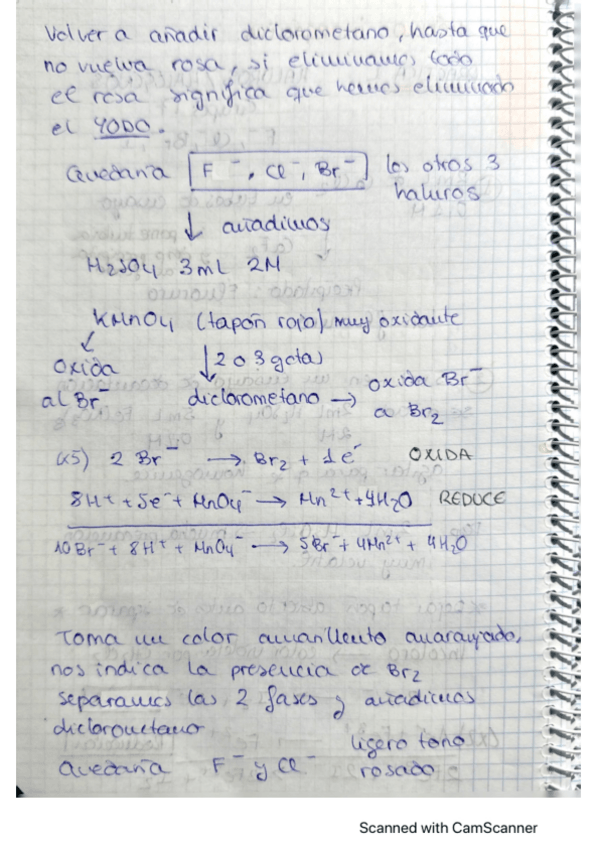 Volver a añadir diclorometano, hasta que
no vuelva rosa, si eliminamos todo
el rosa significa que hemos eliminado
el YODO.
Quedaría F⁻, Cl⁻, Br⁻ los otros 3
haluros
↓ añadimos
H₂SO₄ 3mL 2M
KMnO₄ (tapón rojo) muy oxidante
oxida
al Br⁻
↓ 2 o 3 gotas
diclorometano → oxida Br⁻
a Br₂
(x5) 2 Br⁻ → Br₂ + 1e⁻ OXIDA
8H⁺ + 5e⁻ + MnO₄⁻ → Mn²⁺ + 4H₂O REDUCE
10Br⁻ + 8H⁺ + MnO₄⁻ → 5Br⁻ + 4Mn²⁺ + 4H₂O
Toma un color amarillento anaranjado,
nos indica la presencia de Br₂
separamos las 2 fases y añadimos
diclorometano
Quedaría F⁻ y Cl⁻ ligero tono
rosado
Scanned with CamScanner